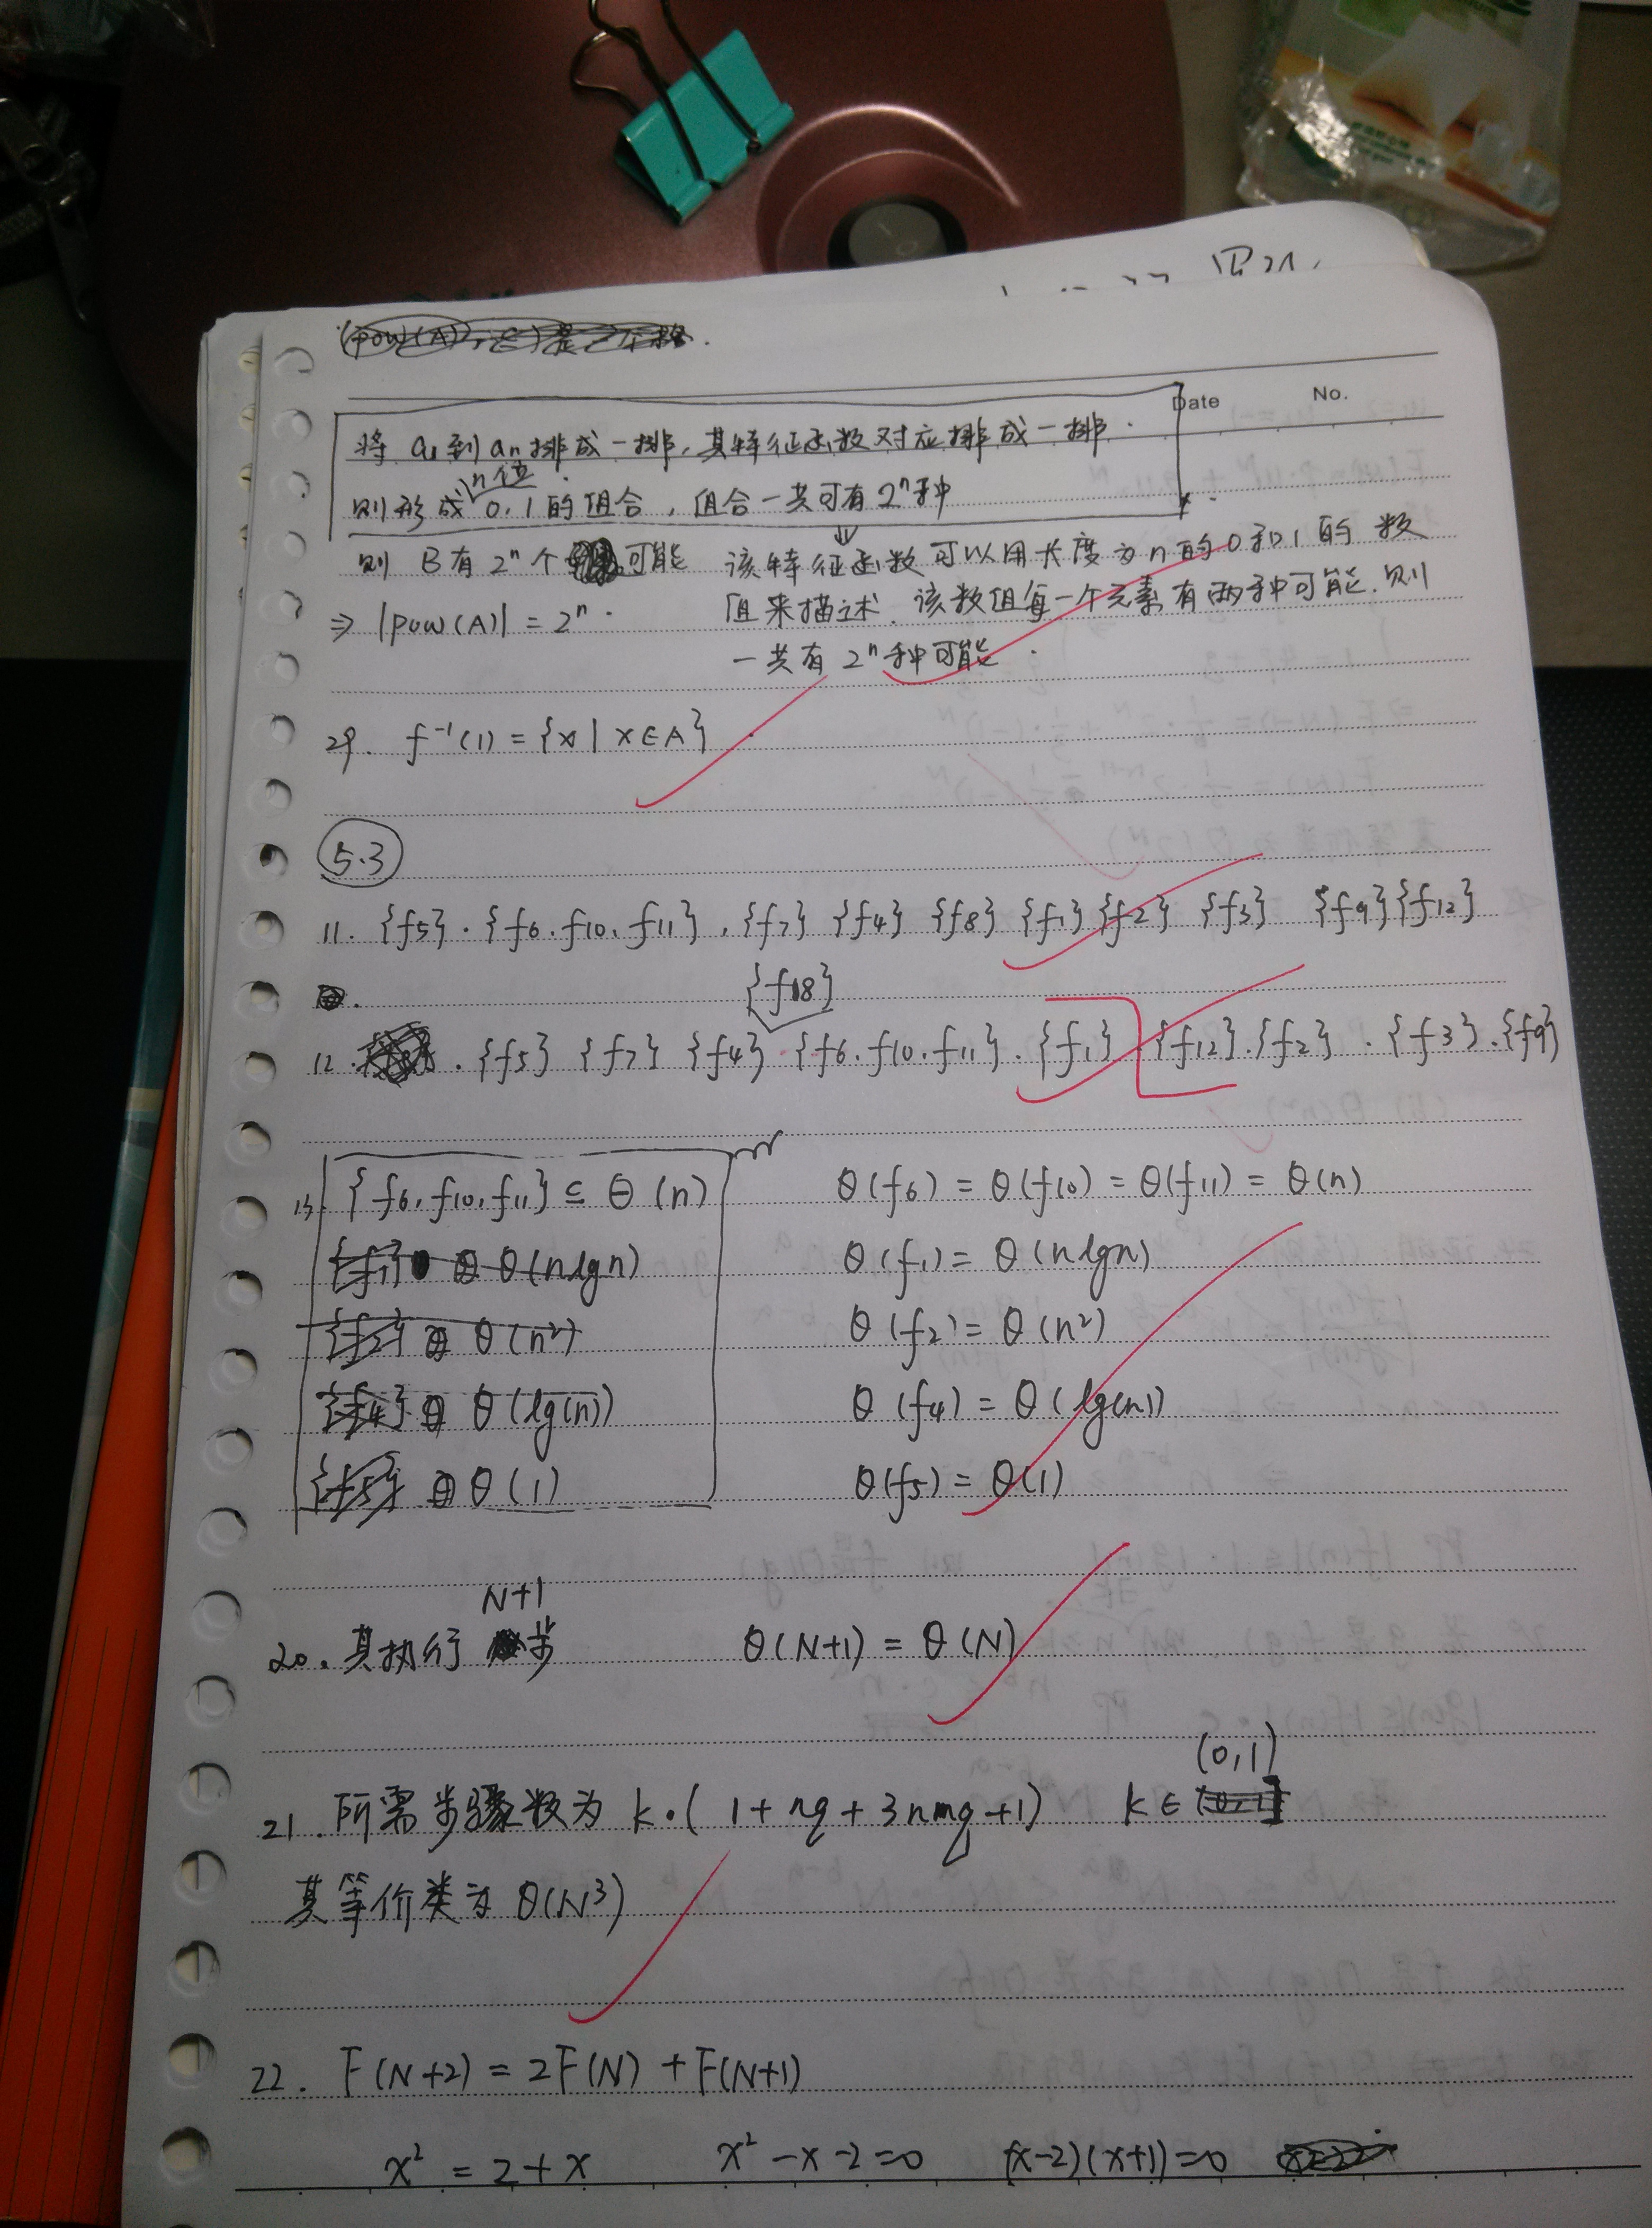 Date No.
将 a₁到 aₙ排成一排,其特征函数对应排成一排.
n位
则形成 0,1的组合,组合一共可有 2ⁿ种
则 B有 2ⁿ个 可能
⇒ |pow(A)| = 2ⁿ.
该特征函数可以用长度为 n 的 0 和 1 的 数
组来描述. 该数组每一个元素有两种可能.则
一共有 2ⁿ种可能.
29. f⁻¹(1) = {x | x∈A}
5.3
11. {f5}. {f6.f10.f11}, {f7} {f4} {f8} {f1} {f2} {f3} {f9} {f12}
{f8}
12. {f5} {f7} {f4} {f6.f10.f11}. {f1} {f12}.{f2}. {f3}.{f9}
13. {f6,f10,f11} ⊆ Θ(n)
θ(nlgn)
θ(n²)
θ(lg(n))
θ(1)
θ(f6) = θ(f10) = θ(f11) = θ(n)
θ(f1) = θ(nlgn)
θ(f2) = θ(n²)
θ(f4) = θ(lg(n))
θ(f5) = θ(1)
N+1
20. 其执行 步 θ(N+1) = θ(N)
(0,1)
21. 所需步骤数为 k·(1+nq+3nmq+1) k∈
其等价类为 θ(N³)
22. F(N+2) = 2F(N) + F(N+1)
x² = 2+x x²-x-2=0 (x-2)(x+1)=0